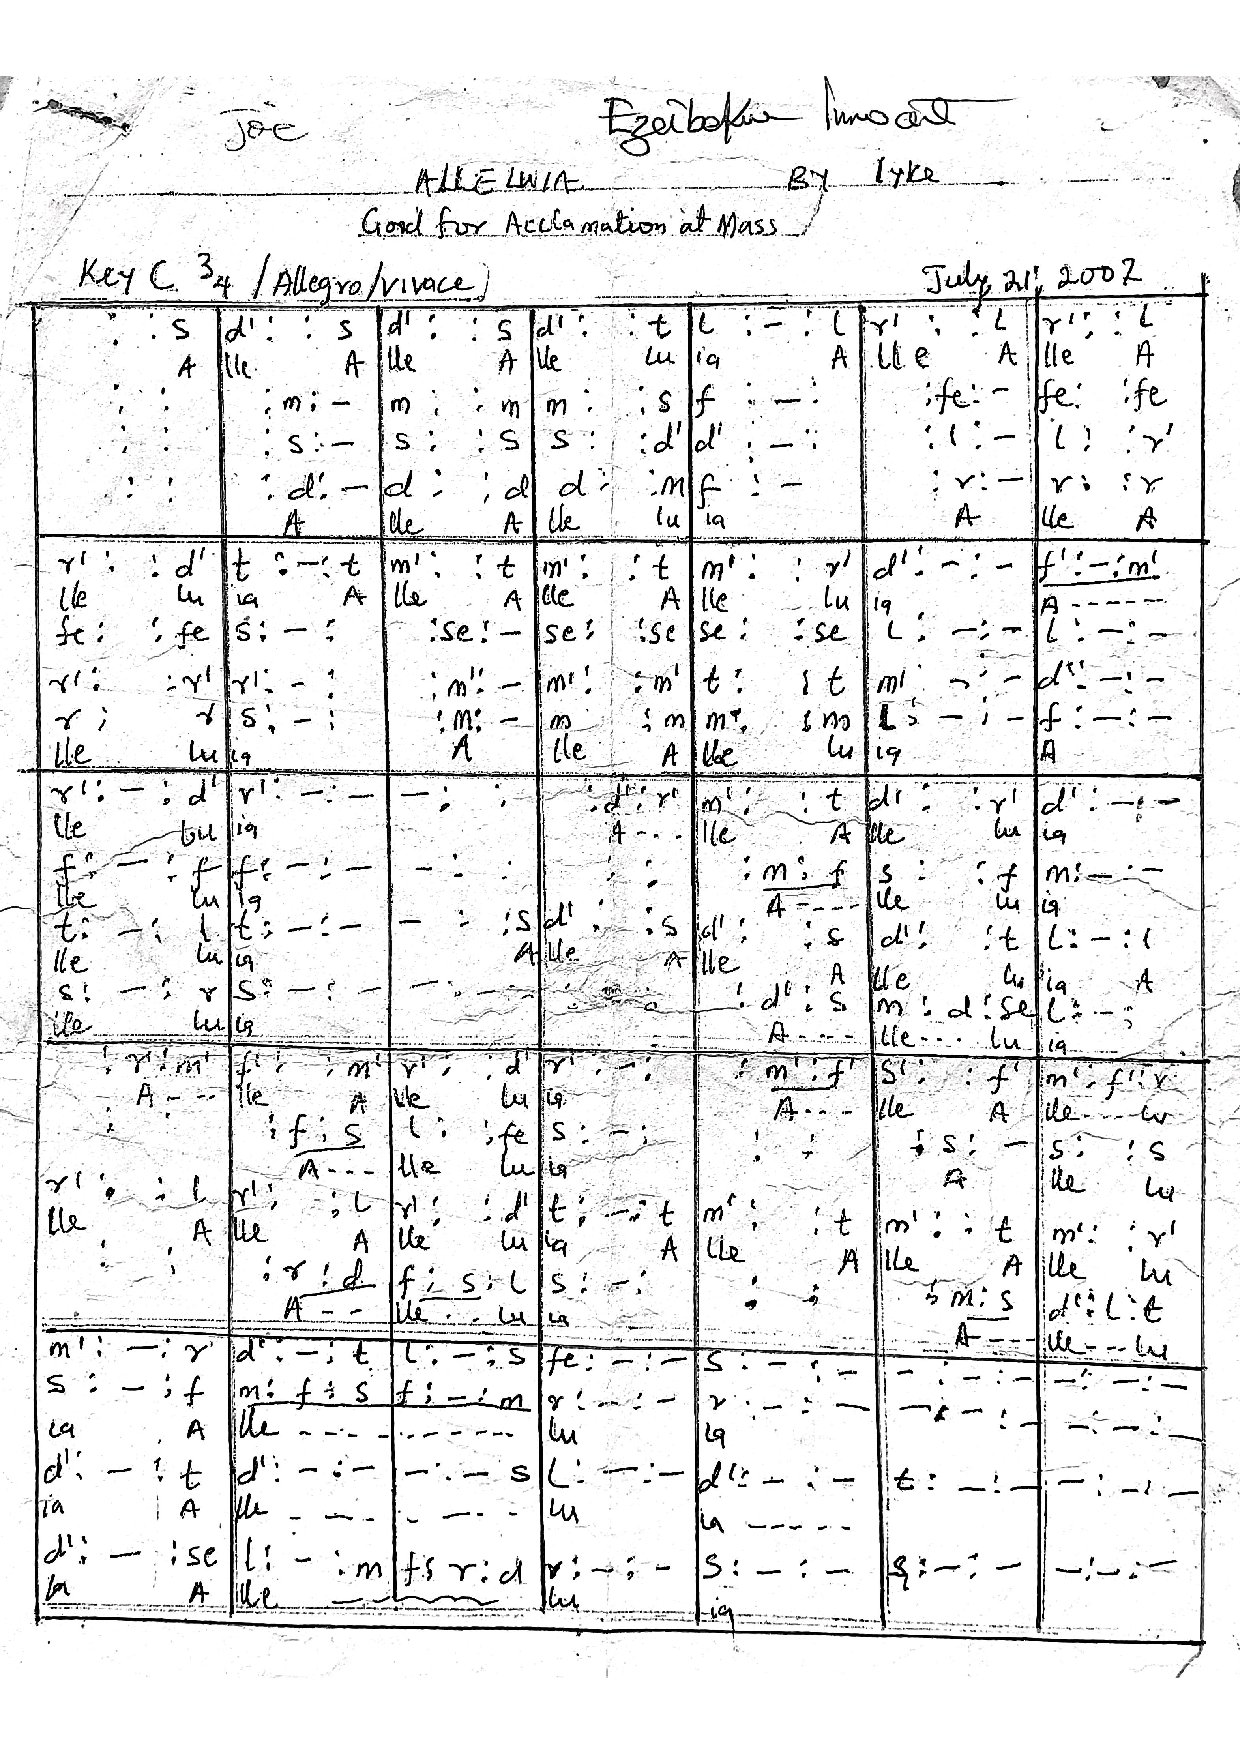 Joe Ezeibekwe Innocent
ALLELUIA BY Iyke
Good for Acclamation at Mass
Key C 3/4 /Allegro/vivace) July, 21, 2007
: : s | d' : : s | d' : : s | d' : : t | l : – : l | r' : : l | r' : : l
A | lle A | lle A | lle lu | ia A | lle A | lle A
: : | : m : – | m : : m | m : : s | f : – : | : fe : – | fe : : fe
: : | : s : – | s : : s | s : : d' | d' : – : | : l : – | l : : r'
: : | : d : – | d : : d | d : : m | f : – | : r : – | r : : r
A | lle A | lle lu | ia | A | lle A
r' : : d' | t : – : t | m' : : t | m' : : t | m' : : r' | d' : – : – | f' : – : m'
lle lu | ia A | lle A | lle A | lle lu | ia | A -----
fe : : fe | s : – : | : se : – | se : : se | se : : se | l : – : – | l : – : –
r' : : r' | r' : – : | : m' : – | m' : : m' | t : : t | m' – : – | d' : – : –
r : r | s : – : | : m : – | m : m | m : : m | l : – : – | f : – : –
lle lu | ia | A | lle A | lle lu | ia | A
r' : – : d' | r' : – : – | – : : | : d' : r' | m' : : t | d' : : r' | d' : – : –
lle lu | ia | A --- | lle A | lle lu | ia
f : – : f | f : – : – | – : – | : : | : m : f | s : : f | m : – : –
lle lu | ia | A ---- | lle lu | ia
t : – : l | t : – : – | – : : s | d' : : s | d' : : s | d' : : t | l : – : l
lle lu | ia | A | lle A | lle A | lle lu | ia A
s : – : r | s : – : – | – : – : – | : d' : s | m : d : se | l : – :
lle lu | ia | A --- | lle --- lu | ia
: r' : m' | f' : : m' | r' : : d' | r' : – : | : m' : f' | s' : : f' | m' : f' : r
A --- | lle A | lle lu | ia | A --- | lle A | lle ---- lu
: | : f : s | l : : fe | s : – : | : : | : s : – | s : : s
A --- | lle lu | ia | A | lle lu
r' : : l | r' : : l | r' : : d' | t : – : t | m' : : t | m' : : t | m' : : r'
lle A | lle A | lle lu | ia A | lle A | lle A | lle lu
: : | : r : d | f : s : l | s : – : | : : | : m : s | d' : l : t
A -- | lle -- lu | ia | A --- | lle --- lu
m' : – : r' | d' : – : t | l : – : s | fe : – : – | s : – : – | – : – : – | – : – : –
s : – : f | m : f : s | f : – : m | r : – : – | r : – : – | – : – : – | – : – : –
ia A | lle --- ------- | lu | ia
d' : – : t | d' : – : – | – : – s | l : – : – | d' : – : – | t : – : – | – : – : –
ia A | lle -- --- | lu | ia -----
d' : – : se | l : – : m | f : r : d | r : – : – | s : – : – | s : – : – | – : – : –
ia A | lle | lu | ia